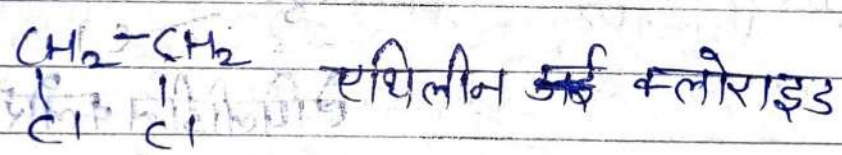 CH2-CH2
| |
Cl Cl
एथिलीन डाई क्लोराइड